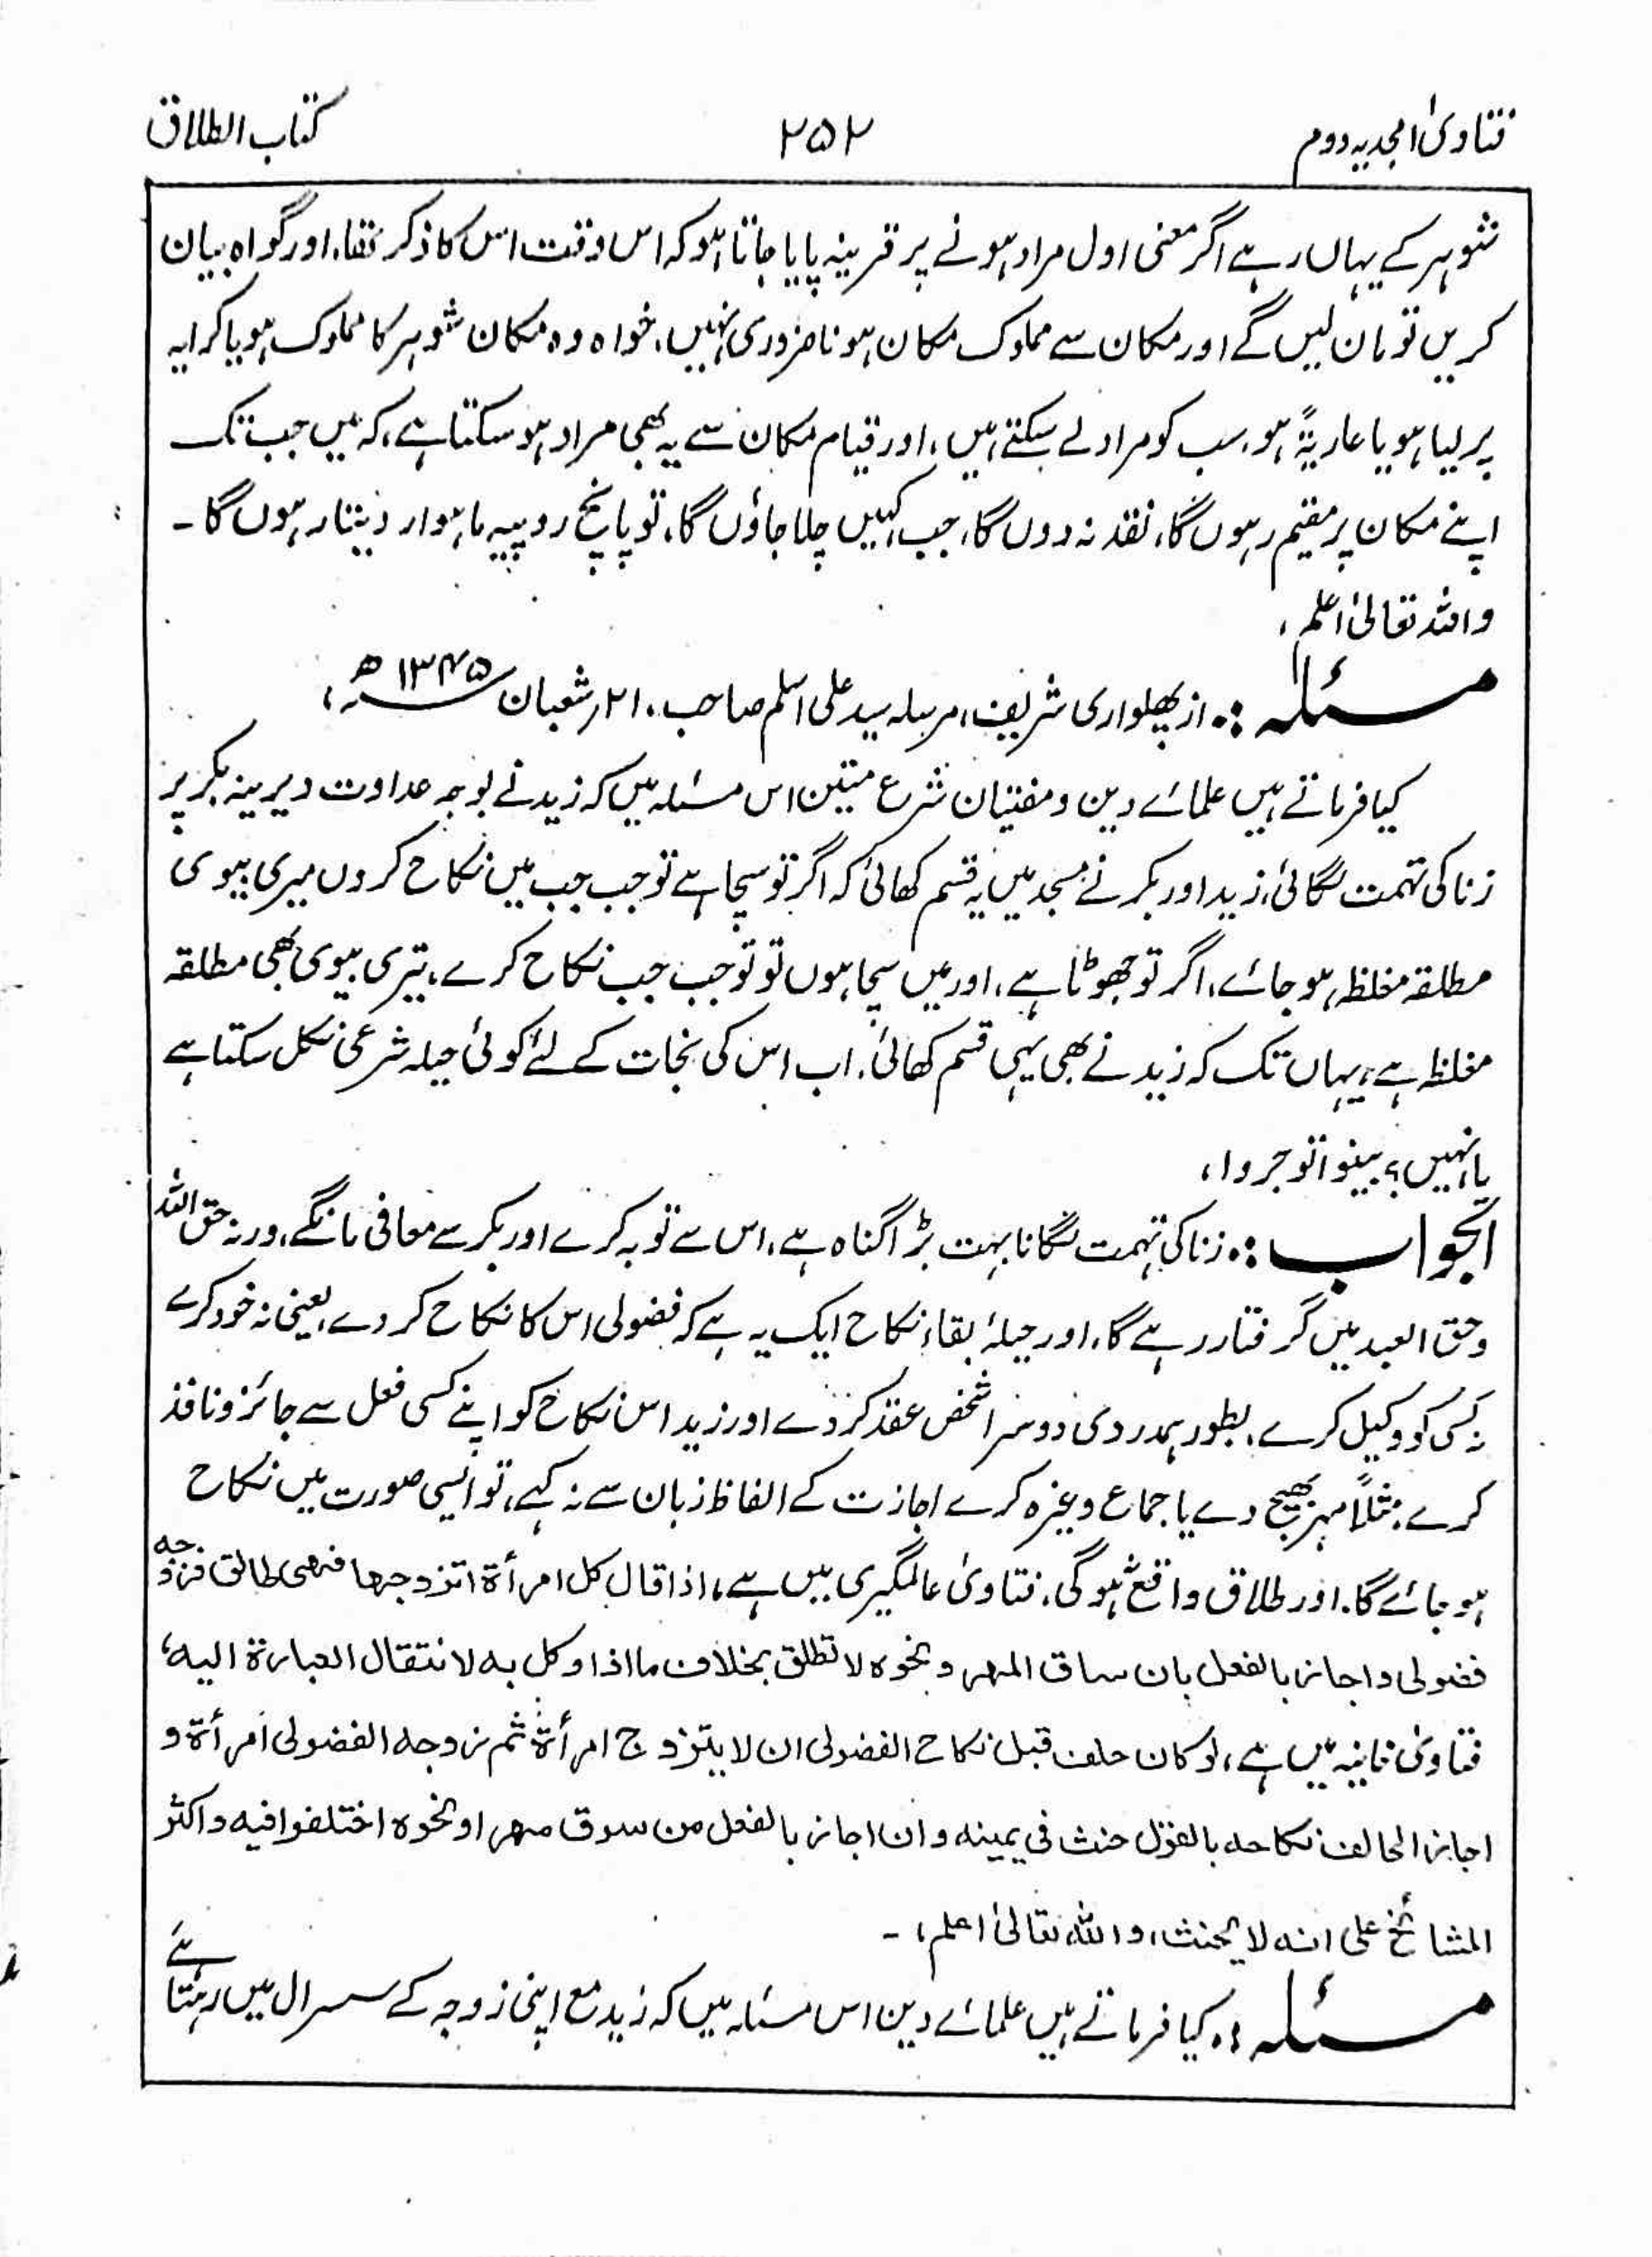 فتاویٰ امجدیہ دوم
۲۵۲
کتاب الطلاق
شوہر کے یہاں رہے اگر معنی اول مراد ہونے پر قرینہ پایا جاتا ہو کہ اس وقت اس کا ذکر تھا، اور گواہ بیان
کریں تو مان لیں گے اور مکان سے مملوک مکان ہونا ضروری نہیں، خواہ وہ مکان شوہر کا مملوک ہو یا کرایہ
پر لیا ہو یا عاریۃً ہو، سب کو مراد لے سکتے ہیں، اور قیام مکان سے یہ بھی مراد ہو سکتا ہے، کہ میں جب تک
اپنے مکان پر مقیم رہوں گا، نقد نہ دوں گا، جب کہیں چلا جاؤں گا، تو پانچ روپیہ ماہوار دیتا رہوں گا۔
واللہ تعالیٰ اعلم،
مسئلہ :۔ از پھلواری شریف، مرسلہ سید علی اسلم صاحب، ۲۱؍ شعبان ۱۳۴۵ھ،
کیا فرماتے ہیں علمائے دین و مفتیان شرع متین اس مسئلہ میں کہ زید نے بوجہ عداوت دیرینہ بکر پر
زنا کی تہمت لگائی، زید اور بکر نے مسجد میں یہ قسم کھائی کہ اگر تو سچا ہے تو جب جب میں نکاح کروں میری بیوی
مطلقہ مغلظہ ہو جائے، اگر تو جھوٹا ہے، اور میں سچا ہوں تو تو جب جب نکاح کرے، تیری بیوی بھی مطلقہ
مغلظہ ہے، یہاں تک کہ زید نے بھی یہی قسم کھائی، اب اس کی نجات کے لئے کوئی حیلہ شرعی نکل سکتا ہے
یا نہیں؟ بینوا توجروا،
الجواب :۔ زنا کی تہمت لگانا بہت بڑا گناہ ہے، اس سے توبہ کرے اور بکر سے معافی مانگے، ورنہ حق اللہ
وحق العبد میں گرفتار رہے گا، اور حیلۂ بقاء نکاح ایک یہ ہے کہ فضولی اس کا نکاح کر دے، یعنی نہ خود کرے
نہ کسی کو وکیل کرے، بطور ہمدردی دوسرا شخص عقد کر دے اور زید اس نکاح کو اپنے کسی فعل سے جائز و نافذ
کرے، مثلاً مہر بھیج دے یا جماع وغیرہ کرے اجازت کے الفاظ زبان سے نہ کہے، تو ایسی صورت میں نکاح
ہو جائے گا، اور طلاق واقع ہوگی، فتاویٰ عالمگیری میں ہے، اذا قال کل امرأۃ اتزوجہا فہی طالق فزوجہ
فضولی واجاز بالفعل بان ساق المہر ونحوہ لا تطلق بخلاف ما اذا وکل بہ لانتقال العبارۃ الیہ،
فتاویٰ خانیہ میں ہے، لو کان حلف قبل نکاح الفضولی ان لا یتزوج امرأۃ ثم زوجہ الفضولی امرأۃ و
اجاز الحالف نکاحہ بالقول حنث فی یمینہ وان اجاز بالفعل من سوق مہر او نحوہ اختلفوا فیہ واکثر
المشائخ علی انہ لا یحنث، واللہ تعالیٰ اعلم،۔
مسئلہ :۔ کیا فرماتے ہیں علمائے دین اس مسئلہ میں کہ زید مع اپنی زوجہ کے سسرال میں رہتا ہے